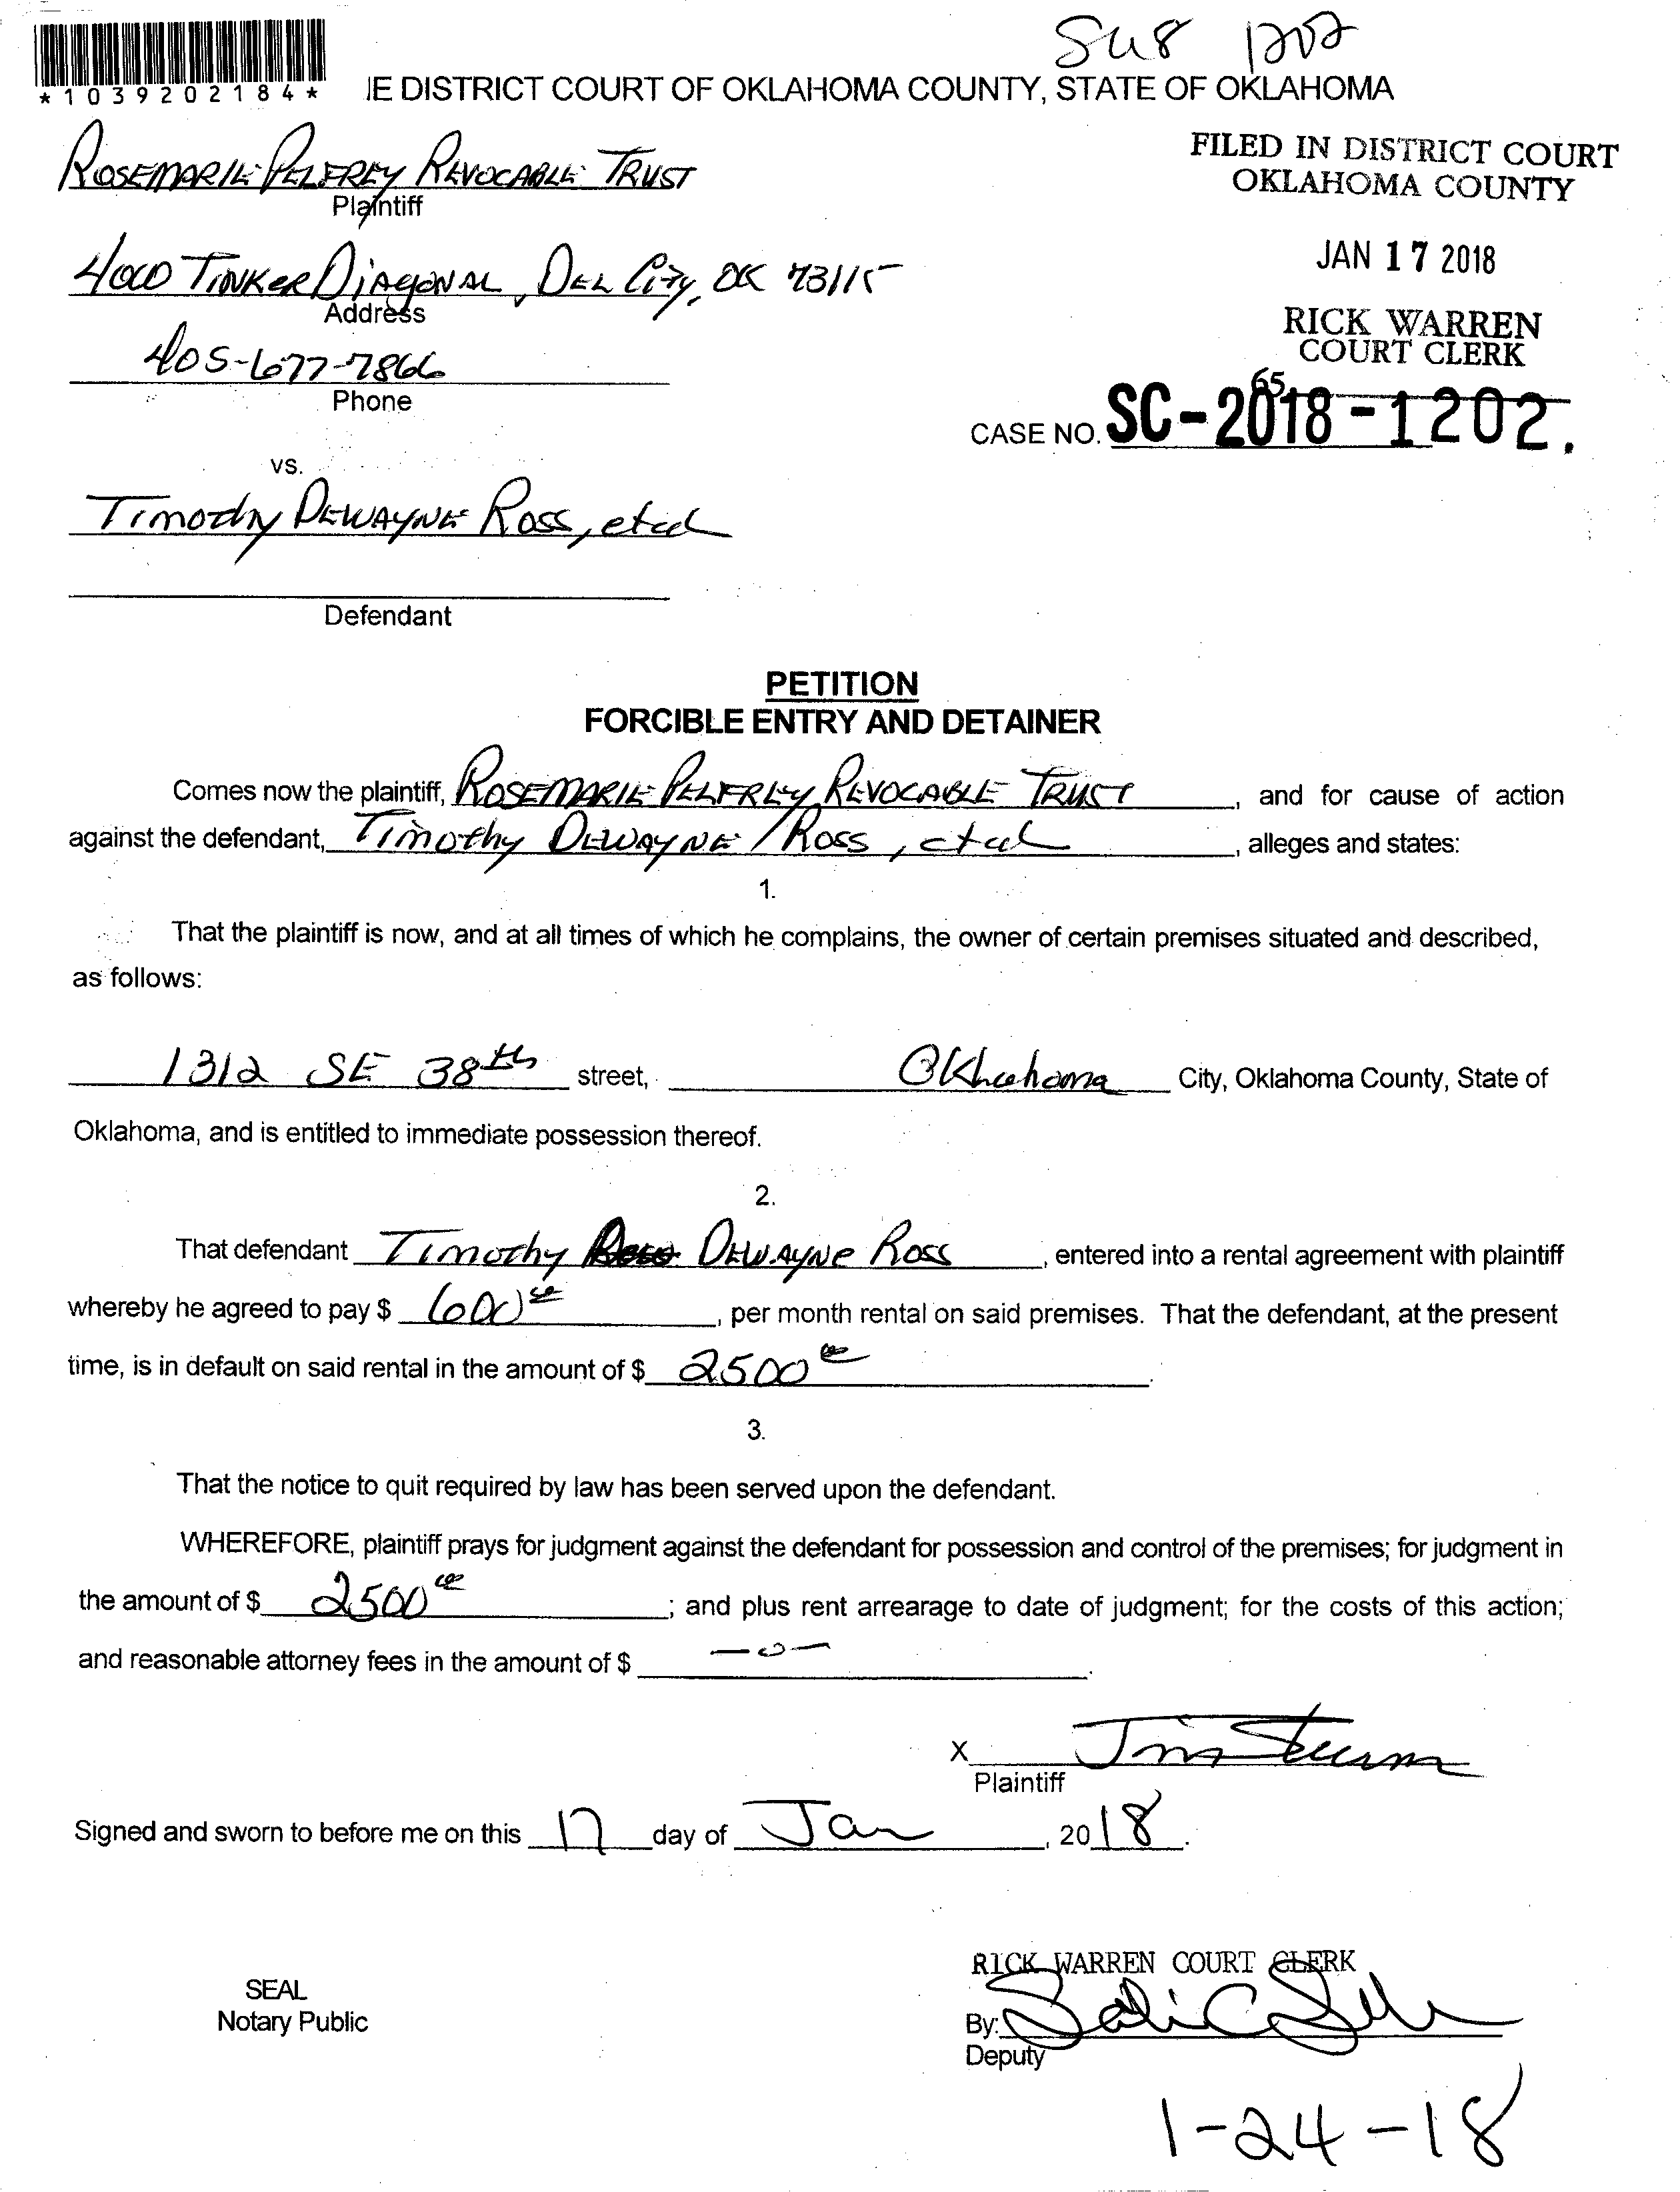 SC18 1202
*1039202184*
IE DISTRICT COURT OF OKLAHOMA COUNTY, STATE OF OKLAHOMA
FILED IN DISTRICT COURT
OKLAHOMA COUNTY
ROSEMARIE PELFREY REVOCABLE TRUST
Plaintiff
JAN 17 2018
4000 TINKER DIAGONAL, DEL CITY, OK 73115
Address
RICK WARREN
COURT CLERK
405-677-7866
Phone
65
CASE NO. SC-2018-1202.
vs.
Timothy DEWAYNE ROSS, etal
Defendant
PETITION
FORCIBLE ENTRY AND DETAINER
Comes now the plaintiff, ROSEMARIE PELFREY REVOCABLE TRUST, and for cause of action
against the defendant, Timothy DEWAYNE ROSS, etal, alleges and states:
1.
That the plaintiff is now, and at all times of which he complains, the owner of certain premises situated and described,
as follows:
1312 SE 38th street, Oklahoma City, Oklahoma County, State of
Oklahoma, and is entitled to immediate possession thereof.
2.
That defendant Timothy DEWAYNE Ross, entered into a rental agreement with plaintiff
whereby he agreed to pay $ 600, per month rental on said premises. That the defendant, at the present
time, is in default on said rental in the amount of $ 2500.
3.
That the notice to quit required by law has been served upon the defendant.
WHEREFORE, plaintiff prays for judgment against the defendant for possession and control of the premises; for judgment in
the amount of $ 2500; and plus rent arrearage to date of judgment; for the costs of this action;
and reasonable attorney fees in the amount of $ -0-.
X
Plaintiff
Signed and sworn to before me on this 17 day of Jan, 2018.
RICK WARREN COURT CLERK
SEAL
Notary Public
By:
Deputy
1-24-18